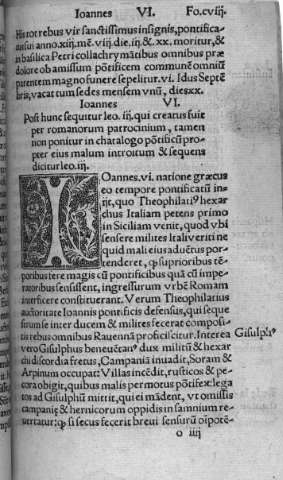 Ioannes VI. Fo.cviij.
His tot rebus vir sanctissimus insignis, pontifica
tus sui anno.xiij.mē.viij.die.iij.&.xx. moritur,&
in basilica Petri collachrymātibus omnibus præ
dolore ob amissum pōtificem communē omniū
parentem magno funere sepelitur.vi. Idus Septē
bris, vacat tum sedes mensem vnū, dies xx.
Ioannes VI.
Post hunc sequitur leo. iij. qui creatus fuit
per romanorum patrocinium, tamen
non ponitur in chatalogo pōtificū pro-
pter eius malum introitum & sequens
dicitur leo.iij.
IOannes.vi. natione græcus
eo tempore pontificatū in-
ijt, quo Theophilatiꝰ hexar
chus Italiam petens primo
in Siciliam venit, quod vbi
sensere milites Itali veriti ne
quid mali eius aduētus por-
tenderet, ꝙ superioribus tē-
poribus tere magis cū pontificibus quā cū impe-
ratoribus sensissent, ingressurum vrbē Romam
interficere constituerant. Verum Theophilatius
auctoritate Ioannis pontificis defensus, qui seque
strum se inter ducem & milites fecerat composi-
tis rebus omnibus Rauennā proficiscitur. Interea Gisulphꝰ
vero Gisulphus beneuētanꝰ dux militū & hexar
chi discordia fretus, Campaniā inuadit, Soram &
Arpinum occupat: Villas incēdit, rusticos & pe-
cora abigit, quibus malis permotus pōtifex lega
tos ad Gisulphū mittit, qui ei mādent, vt omissis
campanię & hernicorum oppidis in samnium re-
uertatur: ꝙ si secus fecerit breui sensurū oīpotē-
o iiij